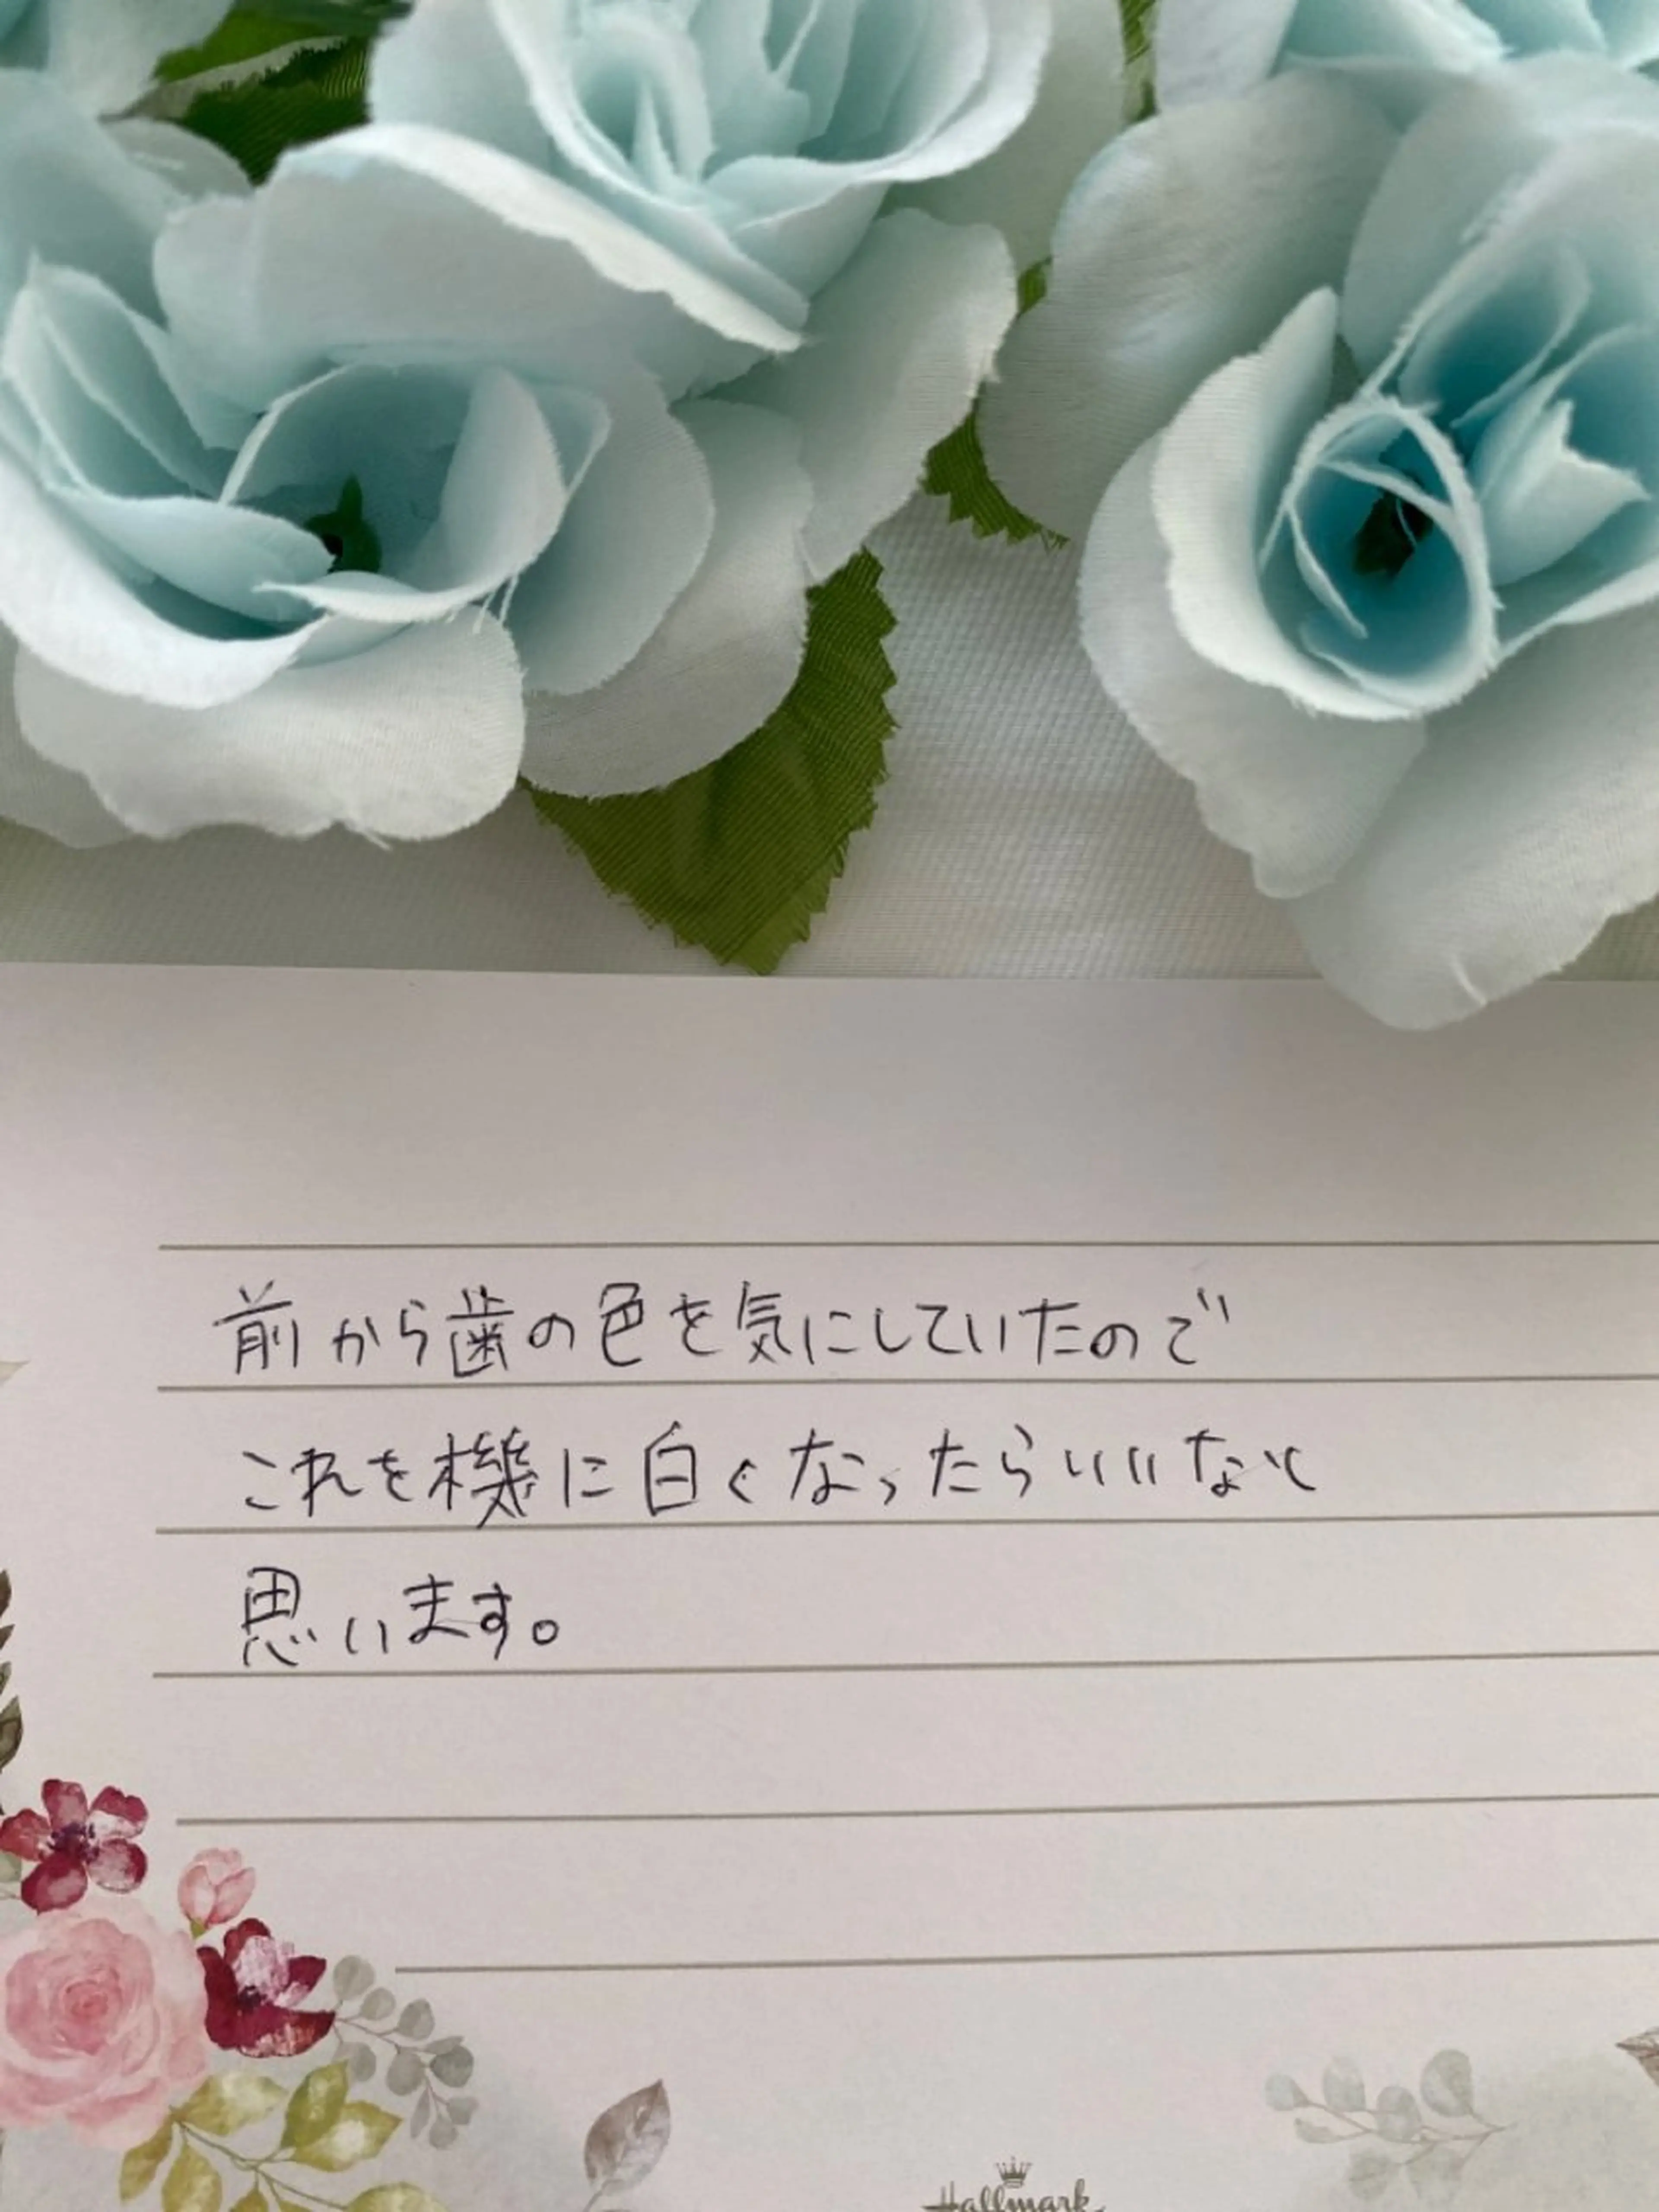 前から歯の色を気にしていたので
これを機に白くなったらいいなと
思います。
Hallmark